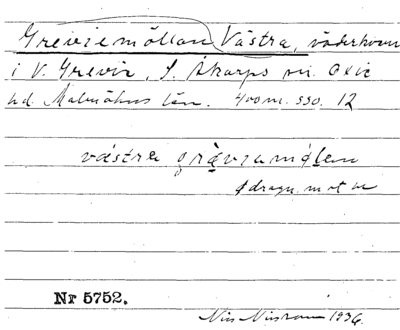 Greviemöllan Västra, väderkvarn
i V. Grevie, S. Åkarps sn. Oxie
hd. Malmöhus län. 400 m. SSO. 12
västra grävramölan
dragn. mot
Nr 5752.
1936